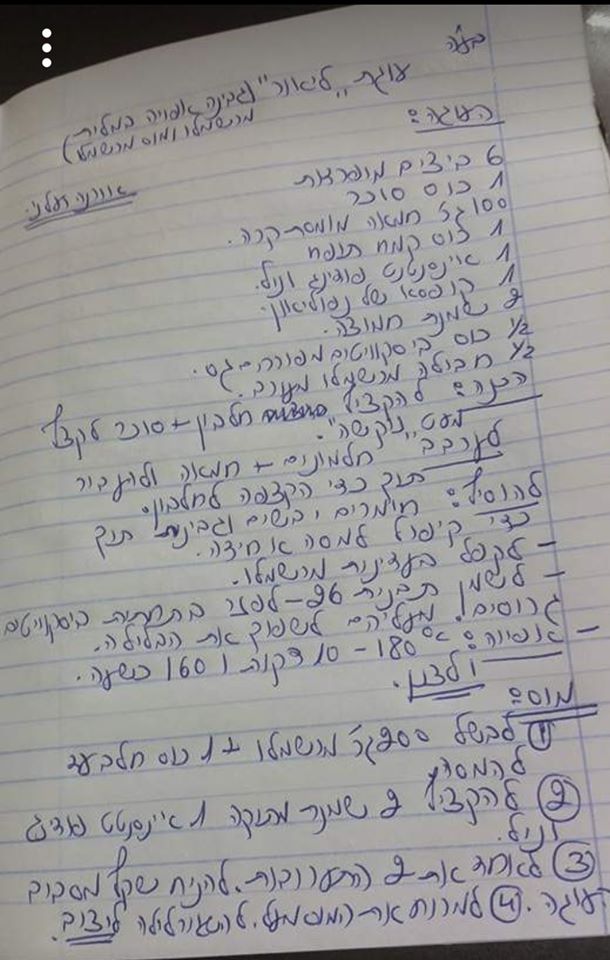 בע"ה
עוגת "ליאור" (גבינה אפויה במלית
מרשמלו ומוס מרשמלו)
העוגה:
6 ביצים מופרדות
1 כוס סוכר
100 גר' חמאה מומסת קרה.
1 כוס קמח תופח
1 אינסטנט פודינג וניל.
1 קופסא של נפוליאון.
2 שמנת חמוצה.
1/2 כוס ביסקוויטים מפוררים גס.
1/2 חבילה מרשמלו מעורב.
הכנה: להקציף חלבון + סוכר לקצף
מעט "נוקשה".
לערבב חלמונים + חמאה ולהעביר
תוך כדי הקצפה לחלבון.
להוסיף: חומרים יבשים וגבינות תוך
כדי קיפול למסה אחידה.
– לקפל בעדינות מרשמלו.
– לשמן תבנית 26 – לפזר בתחתית ביסקוויטים
גרוסים! מעליהם לשפוך את הבלילה.
– אפייה: 180° – 10 דקות ו 160 כשעה.
ולצנן.
מוס:
① לבשל 200 גר' מרשמלו + 1 כוס חלב עד
להמסה
② להקציף 2 שמנת מתוקה 1 אינסטנט פודינג
וניל.
③ לאחד את 2 התערובות. להניח שקף מסביב
לעוגה. ④ למרוח את המוס מעל. להשאיר לילה ליצוב.